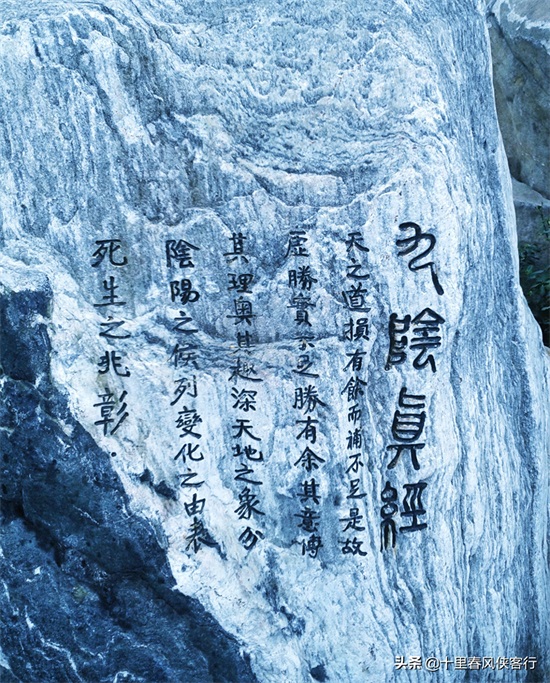 九陰真經
天之道損有餘而補不足是故
虛勝實不足勝有余其意博
其理奥其趣深天地之象分
陰陽之候列變化之由表
死生之兆彰.
头条 @十里春风侠客行